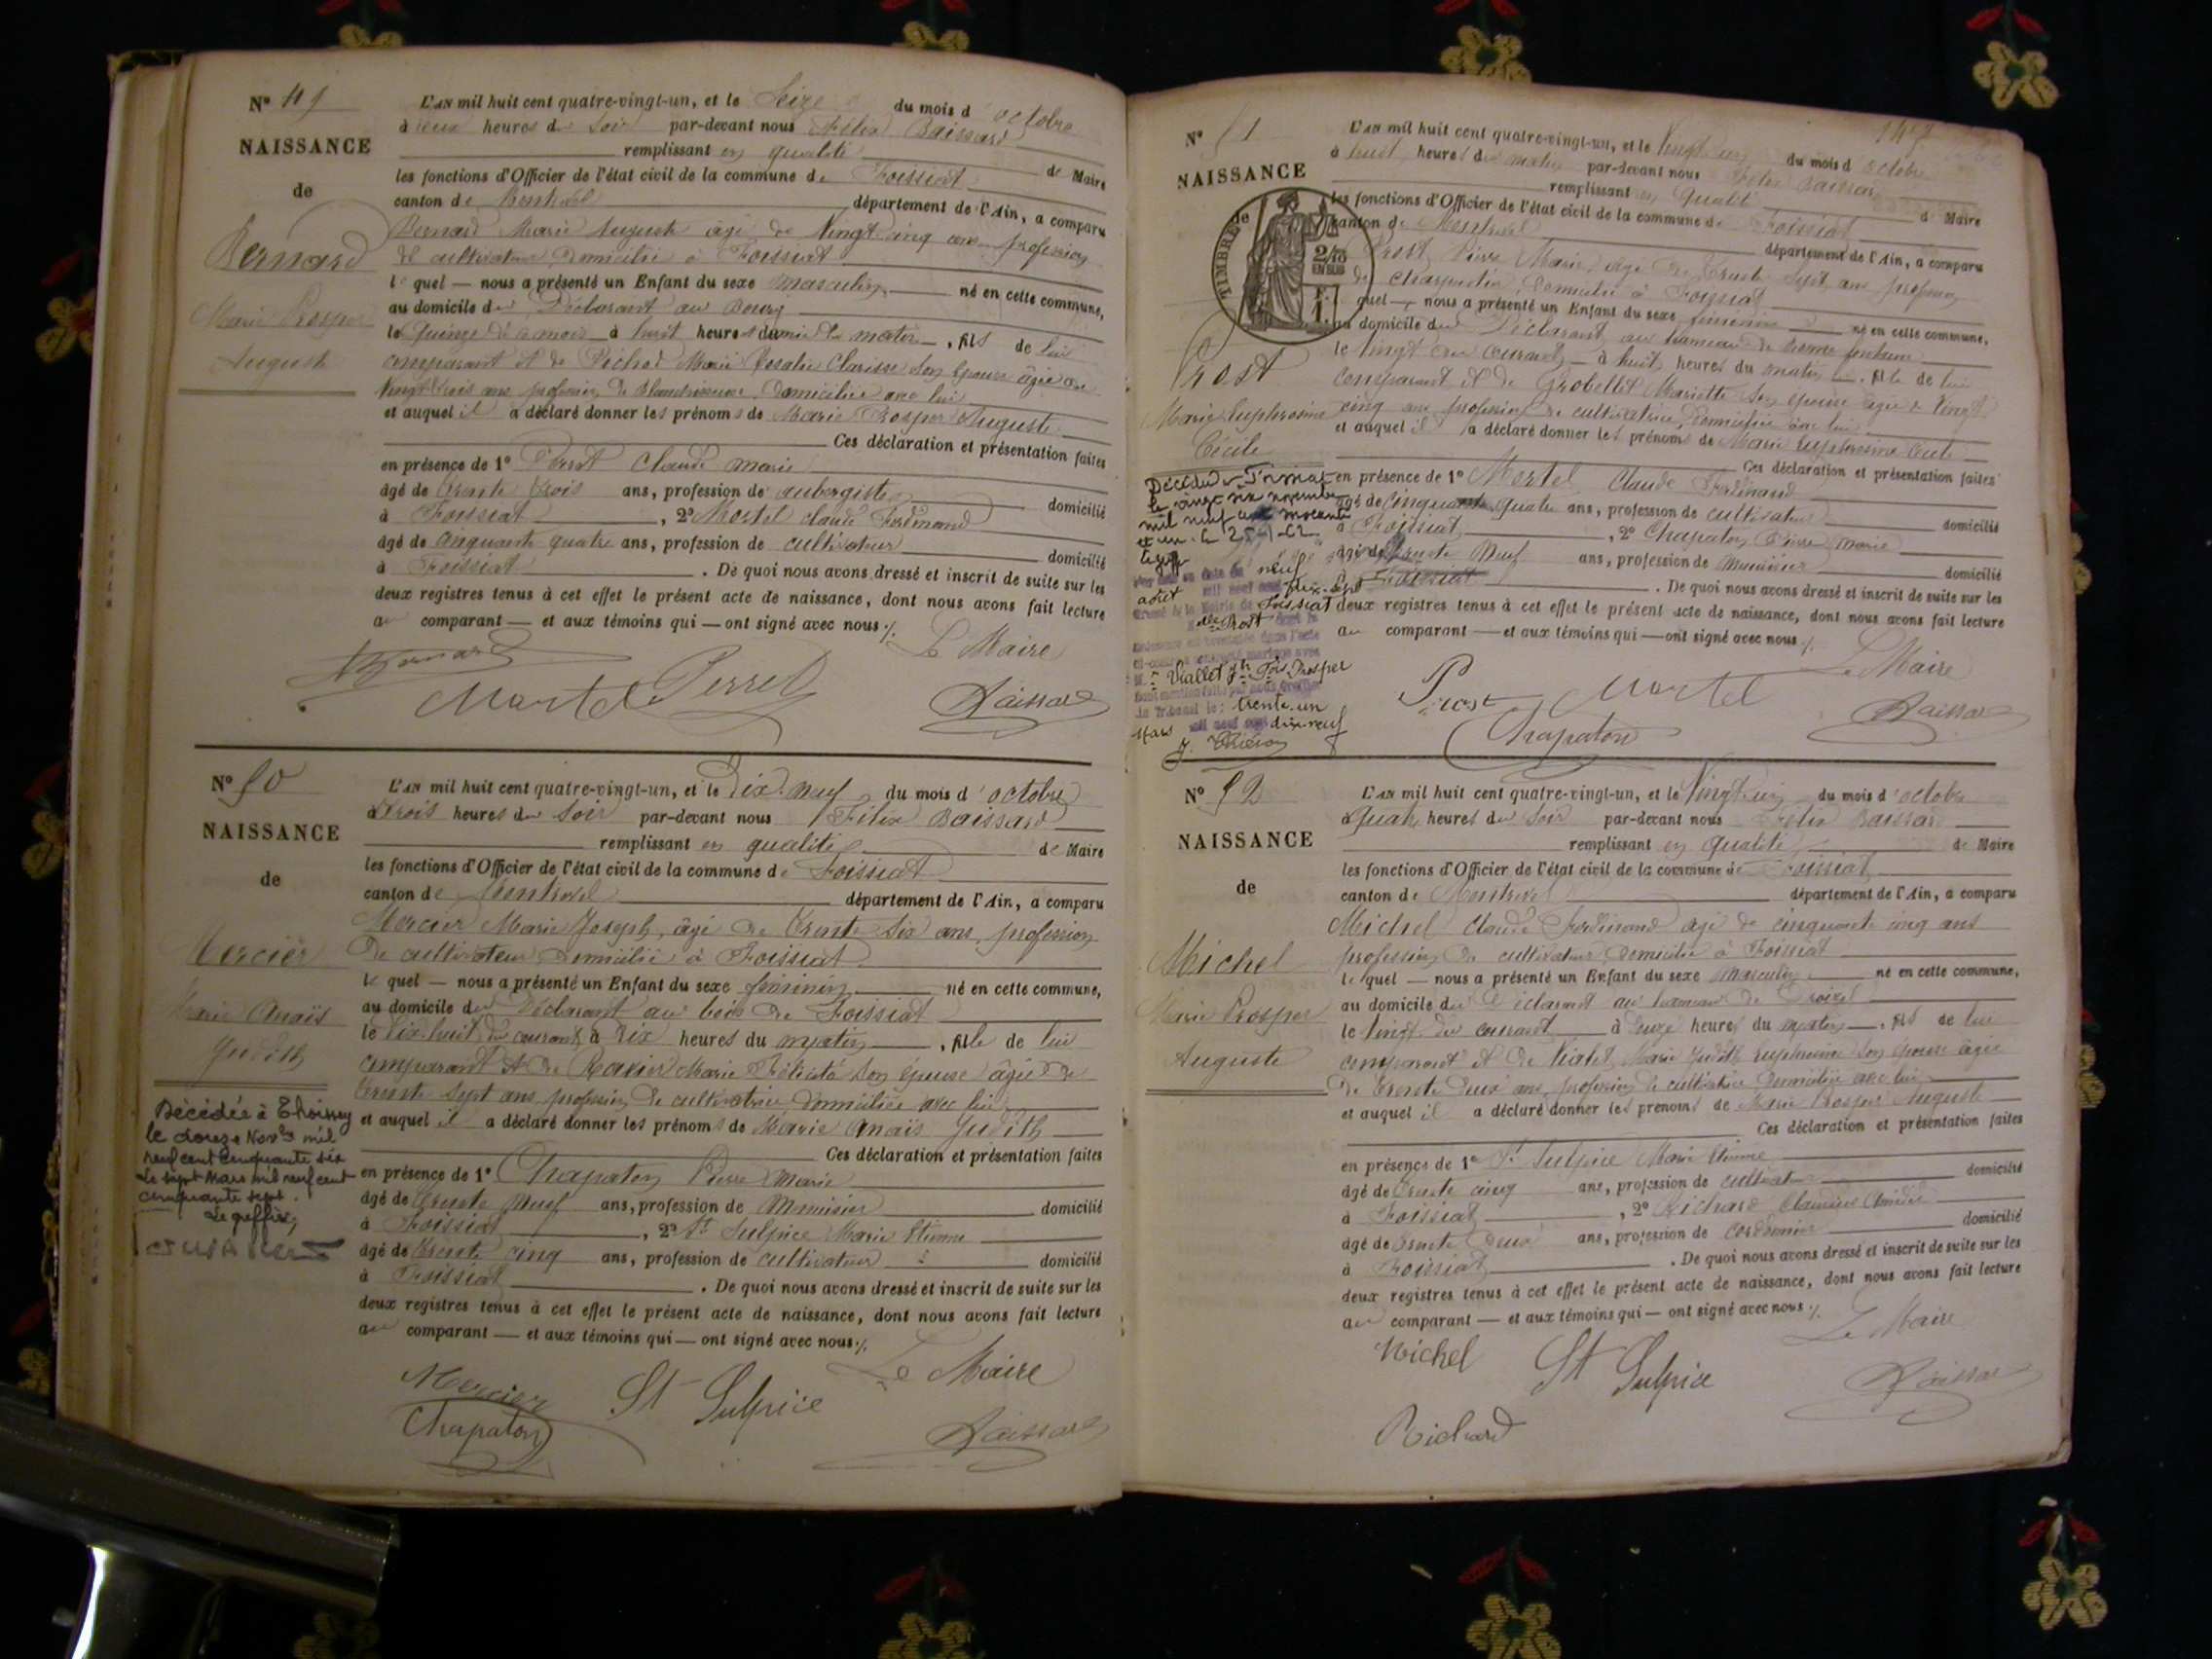 N° 49
NAISSANCE
de
Bernard
Marie Prosper
Auguste
L'AN mil huit cent quatre-vingt-un, et le Seize du mois d'octobre
à deux heures du Soir par-devant nous Félix Baissard
remplissant en qualité de Maire
les fonctions d'Officier de l'état civil de la commune de Foissiat
canton de Montrevel département de l'Ain, a comparu
Bernard Marie Auguste âgé de Vingt cinq ans profession
de cultivateur, Domicilié à Foissiat
le quel — nous a présenté un Enfant du sexe masculin né en cette commune,
au domicile du Déclarant au Bourg
le quinze de ce mois à huit heures du matin, fils de lui
comparant et de Marie Rosalie Clarisse son épouse âgée de
Vingt trois ans profession de Domiciliée avec lui
et auquel il a déclaré donner les prénoms de Marie Prosper Auguste
Ces déclaration et présentation faites
en présence de 1° Perret Claude Marie
âgé de trente trois ans, profession de aubergiste domicilié
à Foissiat, 2° Mortel Claude Ferdinand
âgé de cinquante quatre ans, profession de cultivateur domicilié
à Foissiat. De quoi nous avons dressé et inscrit de suite sur les
deux registres tenus à cet effet le présent acte de naissance, dont nous avons fait lecture
au comparant — et aux témoins qui — ont signé avec nous ./.
Le Maire
Bernard
Mortel Perret Baissard
N° 50
NAISSANCE
de
Mercier
Marie Anaïs
Judith
Décédée à Thoissey
le douze Nov.bre mil
neuf cent cinquante six
Le sept Mars mil neuf cent
cinquante sept.
Le greffier,
L'AN mil huit cent quatre-vingt-un, et le Dix-neuf du mois d'octobre
à trois heures du Soir par-devant nous Félix Baissard
remplissant en qualité de Maire
les fonctions d'Officier de l'état civil de la commune de Foissiat
canton de Montrevel département de l'Ain, a comparu
Mercier Marie Joseph, âgé de trente six ans, profession
de cultivateur Domicilié à Foissiat
le quel — nous a présenté un Enfant du sexe féminin né en cette commune,
au domicile du Déclarant au bois de Foissiat
le dix-huit du courant à dix heures du matin, fille de lui
comparant et de Marie Félicité son épouse âgée de
trente sept ans profession de cultivatrice Domiciliée avec lui
et auquel il a déclaré donner les prénoms de Marie Anaïs Judith
Ces déclaration et présentation faites
en présence de 1° Chapaton Pierre Marie
âgé de trente neuf ans, profession de Menuisier domicilié
à Foissiat, 2° St Sulpice Marie Etienne
âgé de trente cinq ans, profession de cultivateur domicilié
à Foissiat. De quoi nous avons dressé et inscrit de suite sur les
deux registres tenus à cet effet le présent acte de naissance, dont nous avons fait lecture
au comparant — et aux témoins qui — ont signé avec nous ./.
Le Maire
Mercier St Sulpice
Chapaton Baissard
N° 51
NAISSANCE
de
TIMBRE
Prost
Marie Euphrosine
Cécile
Décédée à Foissiat
le vingt six novembre
mil neuf cent soixante
et un. Le 25-1-62
neuf
août mil neuf cent dix-sept
Foissiat
Prost
Viallet Jh Fois Prosper
du Tribunal le: trente-un
Mars mil neuf cent dix-neuf
L'AN mil huit cent quatre-vingt-un, et le Vingt un du mois d'octobre
à huit heures du matin par-devant nous Félix Baissard
remplissant en qualité de Maire
les fonctions d'Officier de l'état civil de la commune de Foissiat
canton de Montrevel département de l'Ain, a comparu
Prost Pierre Marie, âgé de trente sept ans profession
de charpentier, Domicilié à Foissiat
quel — nous a présenté un Enfant du sexe féminin né en cette commune,
au domicile du Déclarant au hameau de
le vingt du courant à huit heures du matin, fille de lui
comparant et de Grobellet Mariette son épouse âgée de Vingt
cinq ans profession de cultivatrice, Domiciliée avec lui
et auquel il a déclaré donner les prénoms de Marie Euphrosine Cécile
Ces déclaration et présentation faites
en présence de 1° Mortel Claude Ferdinand
âgé de cinquante quatre ans, profession de cultivateur domicilié
à Foissiat, 2° Chapaton Pierre Marie
âgé de trente neuf ans, profession de Menuisier domicilié
à Foissiat. De quoi nous avons dressé et inscrit de suite sur les
deux registres tenus à cet effet le présent acte de naissance, dont nous avons fait lecture
au comparant — et aux témoins qui — ont signé avec nous ./.
Le Maire
Prost Mortel
Chapaton Baissard
N° 52
NAISSANCE
de
Michel
Marie Prosper
Auguste
L'AN mil huit cent quatre-vingt-un, et le Vingt un du mois d'octobre
à quatre heures du Soir par-devant nous Félix Baissard
remplissant en qualité de Maire
les fonctions d'Officier de l'état civil de la commune de Foissiat
canton de Montrevel département de l'Ain, a comparu
Michel Claude Ferdinand âgé de cinquante cinq ans
profession de cultivateur, Domicilié à Foissiat
le quel — nous a présenté un Enfant du sexe masculin né en cette commune,
au domicile du Déclarant au hameau de
le vingt du courant à heures du matin, fils de lui
comparant et de Marie Judith Euphrosine son épouse âgée
de trente deux ans, profession de cultivatrice Domiciliée avec lui
et auquel il a déclaré donner les prénoms de Marie Prosper Auguste
Ces déclaration et présentation faites
en présence de 1° St Sulpice Marie Etienne
âgé de trente cinq ans, profession de cultivateur domicilié
à Foissiat, 2° Richard
âgé de trente deux ans, profession de cordonnier domicilié
à Foissiat. De quoi nous avons dressé et inscrit de suite sur les
deux registres tenus à cet effet le présent acte de naissance, dont nous avons fait lecture
au comparant — et aux témoins qui — ont signé avec nous ./.
Le Maire
Michel St Sulpice Baissard
Richard